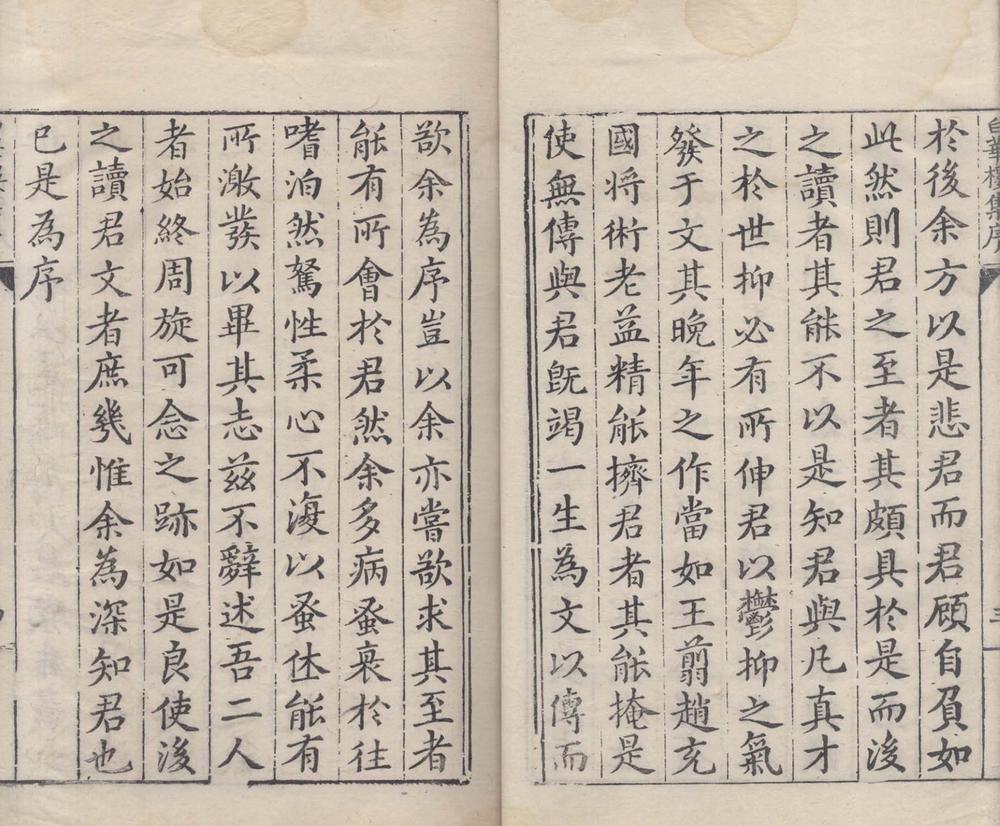 白華樓集序
於後余方以是悲君而君顧自負如
此然則君之至者其頗具於是而後
之讀者其能不以是知君與凡真才
之於世抑必有所伸君以鬱抑之氣
發于文其晚年之作當如王翦趙充
國將術老益精能擠君者其能掩是
使無傳與君既竭一生為文以傳而
欲余為序豈以余亦嘗欲求其至者
能有所會於君然余多病蚤衰於往
嗜泊然駑性柔心不復以蚤休能有
所激發以畢其志茲不辭述吾二人
者始終周旋可念之跡如是良使後
之讀君文者庶幾惟余為深知君也
已是為序